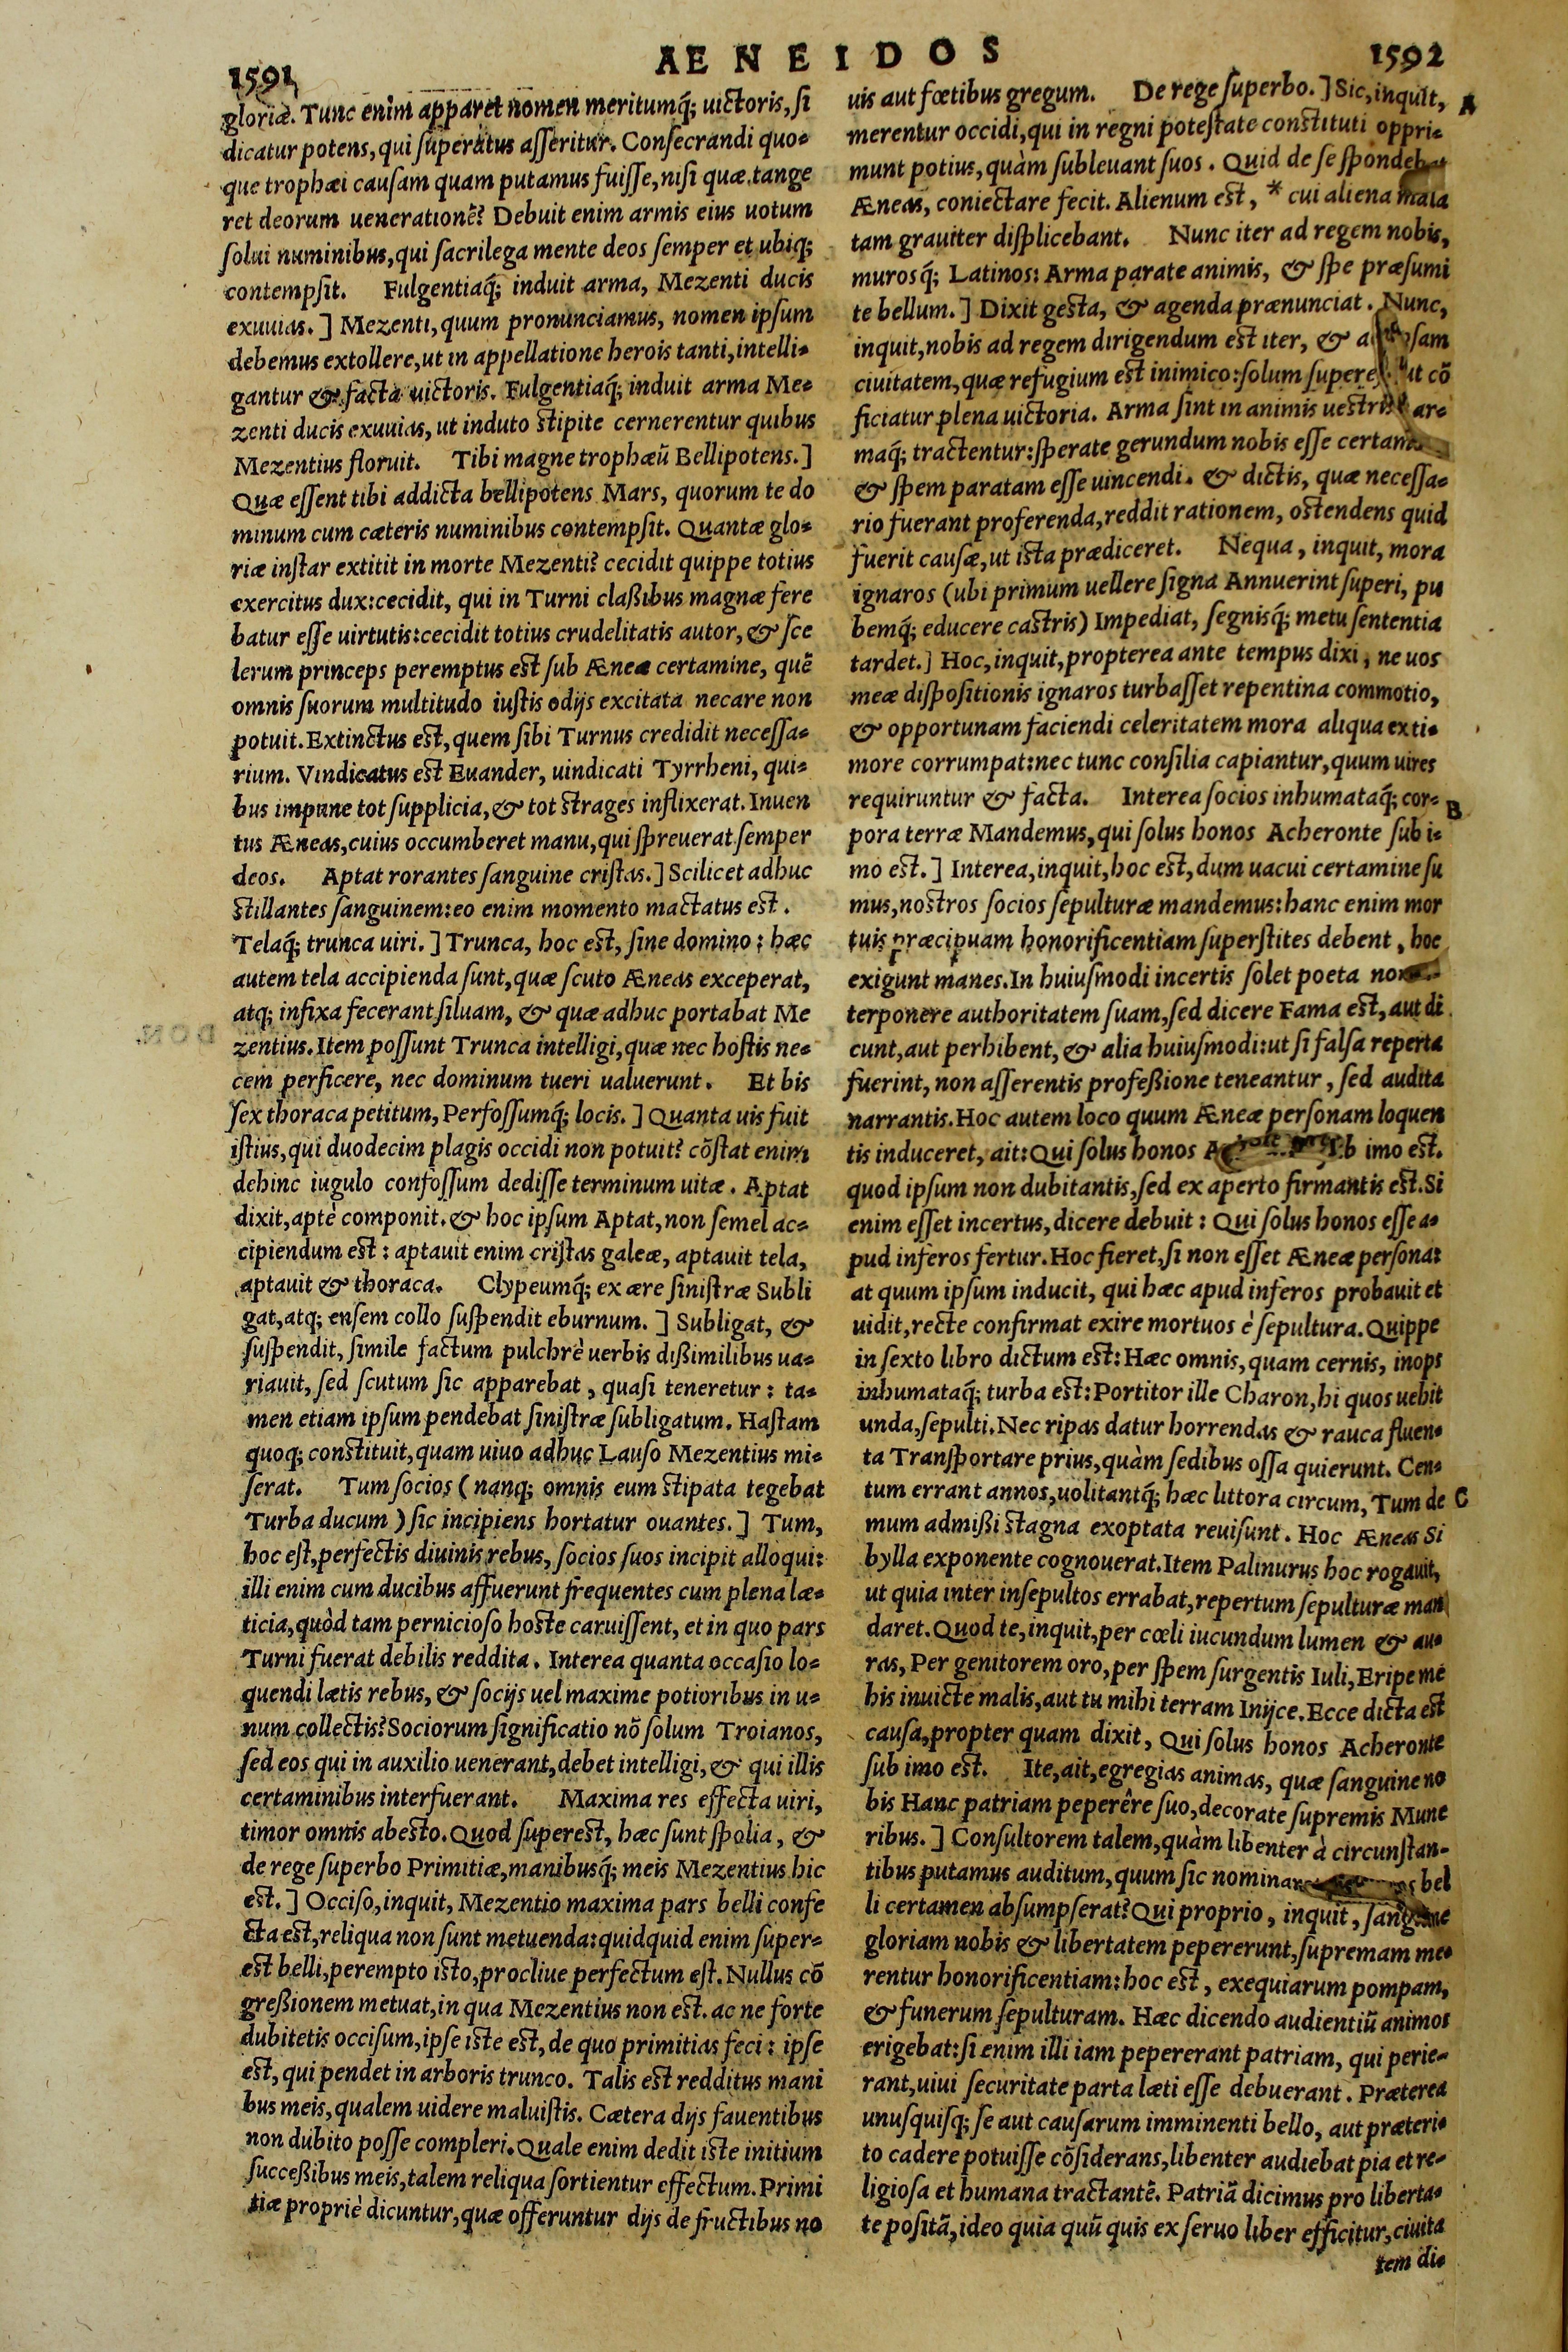 AENEIDOS
1591
gloriæ. Tunc enim apparet nomen meritumq́; uictoris, si
dicatur potens, qui superatus asseritur. Consecrandi quo-
que trophæi causam quam putamus fuisse, nisi quæ tange
ret deorum uenerationẽ? Debuit enim armis eius uotum
solui numinibus, qui sacrilega mente deos semper et ubiq;
contempsit. Fulgentiaq́; induit arma, Mezenti ducis
exuuias.] Mezenti, quum pronunciamus, nomen ipsum
debemus extollere, ut in appellatione herois tanti, intelli-
gantur & facta uictoris. Fulgentiaq́; induit arma Me-
zenti ducis exuuias, ut induto stipite cernerentur quibus
Mezentius floruit. Tibi magne trophæũ Bellipotens.]
Quæ essent tibi addicta bellipotens Mars, quorum te do
minum cum cæteris numinibus contempsit. Quantæ glo-
riæ instar extitit in morte Mezenti? cecidit quippe totius
exercitus dux: cecidit, qui in Turni claßibus magnæ fere
batur esse uirtutis: cecidit totius crudelitatis autor, & sce
lerum princeps peremptus est sub Æneæ certamine, quẽ
omnis suorum multitudo iustis odijs excitata necare non
potuit. Extinctus est, quem sibi Turnus credidit necessa-
rium. Vindicatus est Euander, uindicati Tyrrheni, qui-
bus impune tot supplicia, & tot strages inflixerat. Inuen
tus Æneas, cuius occumberet manu, qui spreuerat semper
deos. Aptat rorantes sanguine cristas.] Scilicet adhuc
stillantes sanguinem: eo enim momento mactatus est.
Telaq́; trunca uiri.] Trunca, hoc est, sine domino: hæc
autem tela accipienda sunt, quæ scuto Æneas exceperat,
atq; infixa fecerant siluam, & quæ adhuc portabat Me
zentius. Item possunt Trunca intelligi, quæ nec hostis ne-
cem perficere, nec dominum tueri ualuerunt. Et bis
sex thoraca petitum, Perfossumq́; locis.] Quanta uis fuit
istius, qui duodecim plagis occidi non potuit? cõstat enim
dehinc iugulo confossum dedisse terminum uitæ. Aptat
dixit, aptè componit. & hoc ipsum Aptat, non semel ac-
cipiendum est: aptauit enim cristas galeæ, aptauit tela,
aptauit & thoraca. Clypeumq́; ex ære sinistræ Subli
gat, atq; ensem collo suspendit eburnum.] Subligat, &
suspendit, simile factum pulchrè uerbis dißimilibus ua-
riauit, sed scutum sic apparebat, quasi teneretur: ta-
men etiam ipsum pendebat sinistræ subligatum. Hastam
quoq; constituit, quam uiuo adhuc Lauso Mezentius mi-
serat. Tum socios (nanq; omnis eum stipata tegebat
Turba ducum) sic incipiens hortatur ouantes.] Tum,
hoc est, perfectis diuinis rebus, socios suos incipit alloqui:
illi enim cum ducibus affuerunt frequentes cum plena læ-
ticia, quòd tam pernicioso hoste caruissent, et in quo pars
Turni fuerat debilis reddita. Interea quanta occasio lo-
quendi lætis rebus, & socijs uel maxime potioribus in u-
num collectis? Sociorum significatio nõ solum Troianos,
sed eos qui in auxilio uenerant, debet intelligi, & qui illis
certaminibus interfuerant. Maxima res effecta uiri,
timor omnis abesto. Quod superest, hæc sunt spolia, &
de rege superbo Primitiæ, manibusq́; meis Mezentius hic
est.] Occiso, inquit, Mezentio maxima pars belli confe
cta est, reliqua non sunt metuenda: quidquid enim super-
est belli, perempto isto, procliue perfectum est. Nullus cõ
greßionem metuat, in qua Mezentius non est. ac ne forte
dubitetis occisum, ipse iste est, de quo primitias feci: ipse
est, qui pendet in arboris trunco. Talis est redditus mani
bus meis, qualem uidere maluistis. Cætera dijs fauentibus
non dubito posse compleri. Quale enim dedit iste initium
succeßibus meis, talem reliqua sortientur effectum. Primi
tiæ propriè dicuntur, quæ offeruntur dijs de fructibus no
1592
uis aut fœtibus gregum. De rege superbo.] Sic, inquit, A
merentur occidi, qui in regni potestate constituti oppri-
munt potius, quàm subleuant suos. Quid de se spondebat
Æneas, coniectare fecit. Alienum est, * cui aliena mala
tam grauiter displicebant. Nunc iter ad regem nobis,
murosq́; Latinos: Arma parate animis, & spe præsumi
te bellum.] Dixit gesta, & agenda prænunciat. Nunc,
inquit, nobis ad regem dirigendum est iter, &
ciuitatem, quæ refugium est inimico: solum ut cõ
ficiatur plena uictoria. Arma sint in animis ar-
maq́; tractentur: sperate gerundum nobis esse
& spem paratam esse uincendi. & dictis, quæ necessa-
rio fuerant proferenda, reddit rationem, ostendens quid
fuerit causæ, ut ista prædiceret. Nequa, inquit, mora
ignaros (ubi primum uellere signa Annuerint superi, pu
bemq́; educere castris) Impediat, segnisq́; metu sententia
tardet.] Hoc, inquit, propterea ante tempus dixi, ne uos
meæ dispositionis ignaros turbasset repentina commotio,
& opportunam faciendi celeritatem mora aliqua ex ti-
more corrumpat: nec tunc consilia capiantur, quum uires
requiruntur & facta. Interea socios inhumataq́; cor- B
pora terræ Mandemus, qui solus honos Acheronte sub i-
mo est.] Interea, inquit, hoc est, dum uacui certamine su
mus, nostros socios sepulturæ mandemus: hanc enim mor
tuis præcipuam honorificentiam superstites debent, hoc
exigunt manes. In huiusmodi incertis solet poeta
terponere authoritatem suam, sed dicere Fama est, aut di
cunt, aut perhibent, & alia huiusmodi: ut si falsa reperta
fuerint, non asserentis profeßione teneantur, sed audita
narrantis. Hoc autem loco quum Æneæ personam loquen
tis induceret, ait: Qui solus honos imo est.
quod ipsum non dubitantis, sed ex aperto firmantis est. Si
enim esset incertus, dicere debuit: Qui solus honos esse a-
pud inferos fertur. Hoc fieret, si non esset Æneæ persona:
at quum ipsum inducit, qui hæc apud inferos probauit et
uidit, recte confirmat exire mortuos è sepultura. Quippe
in sexto libro dictum est: Hæc omnis, quam cernis, inops
inhumataq́; turba est: Portitor ille Charon, hi quos uehit
unda, sepulti. Nec ripas datur horrendas & rauca fluen-
ta Transportare prius, quàm sedibus ossa quierunt. Cen-
tum errant annos, uolitantq́; hæc littora circum, Tum de C
mum admißi stagna exoptata reuisunt. Hoc Æneas Si
bylla exponente cognouerat. Item Palinurus hoc rogauit,
ut quia inter insepultos errabat, repertum sepulturæ man
daret. Quod te, inquit, per cœli iucundum lumen & au-
ras, Per genitorem oro, per spem surgentis Iuli, Eripe me
his inuicte malis, aut tu mihi terram Inijce. Ecce dicta est
causa, propter quam dixit, Qui solus honos Acheronte
sub imo est. Ite, ait, egregias animas, quæ sanguine no
bis Hanc patriam peperêre suo, decorate supremis Mune
ribus.] Consultorem talem, quàm libenter à circunstan-
tibus putamus auditum, quum sic bel
li certamen absumpserat? Qui proprio, inquit, sanguine
gloriam nobis & libertatem pepererunt, supremam me-
rentur honorificentiam: hoc est, exequiarum pompam,
& funerum sepulturam. Hæc dicendo audientiũ animos
erigebat: si enim illi iam pepererant patriam, qui perie-
rant, uiui securitate parta læti esse debuerant. Præterea
unusquisq; se aut causarum imminenti bello, aut præteri-
to cadere potuisse cõsiderans, libenter audiebat pia et re-
ligiosa et humana tractantẽ. Patriã dicimus pro liberta-
te positã, ideo quia quũ quis ex seruo liber efficitur, ciuita
tem di-